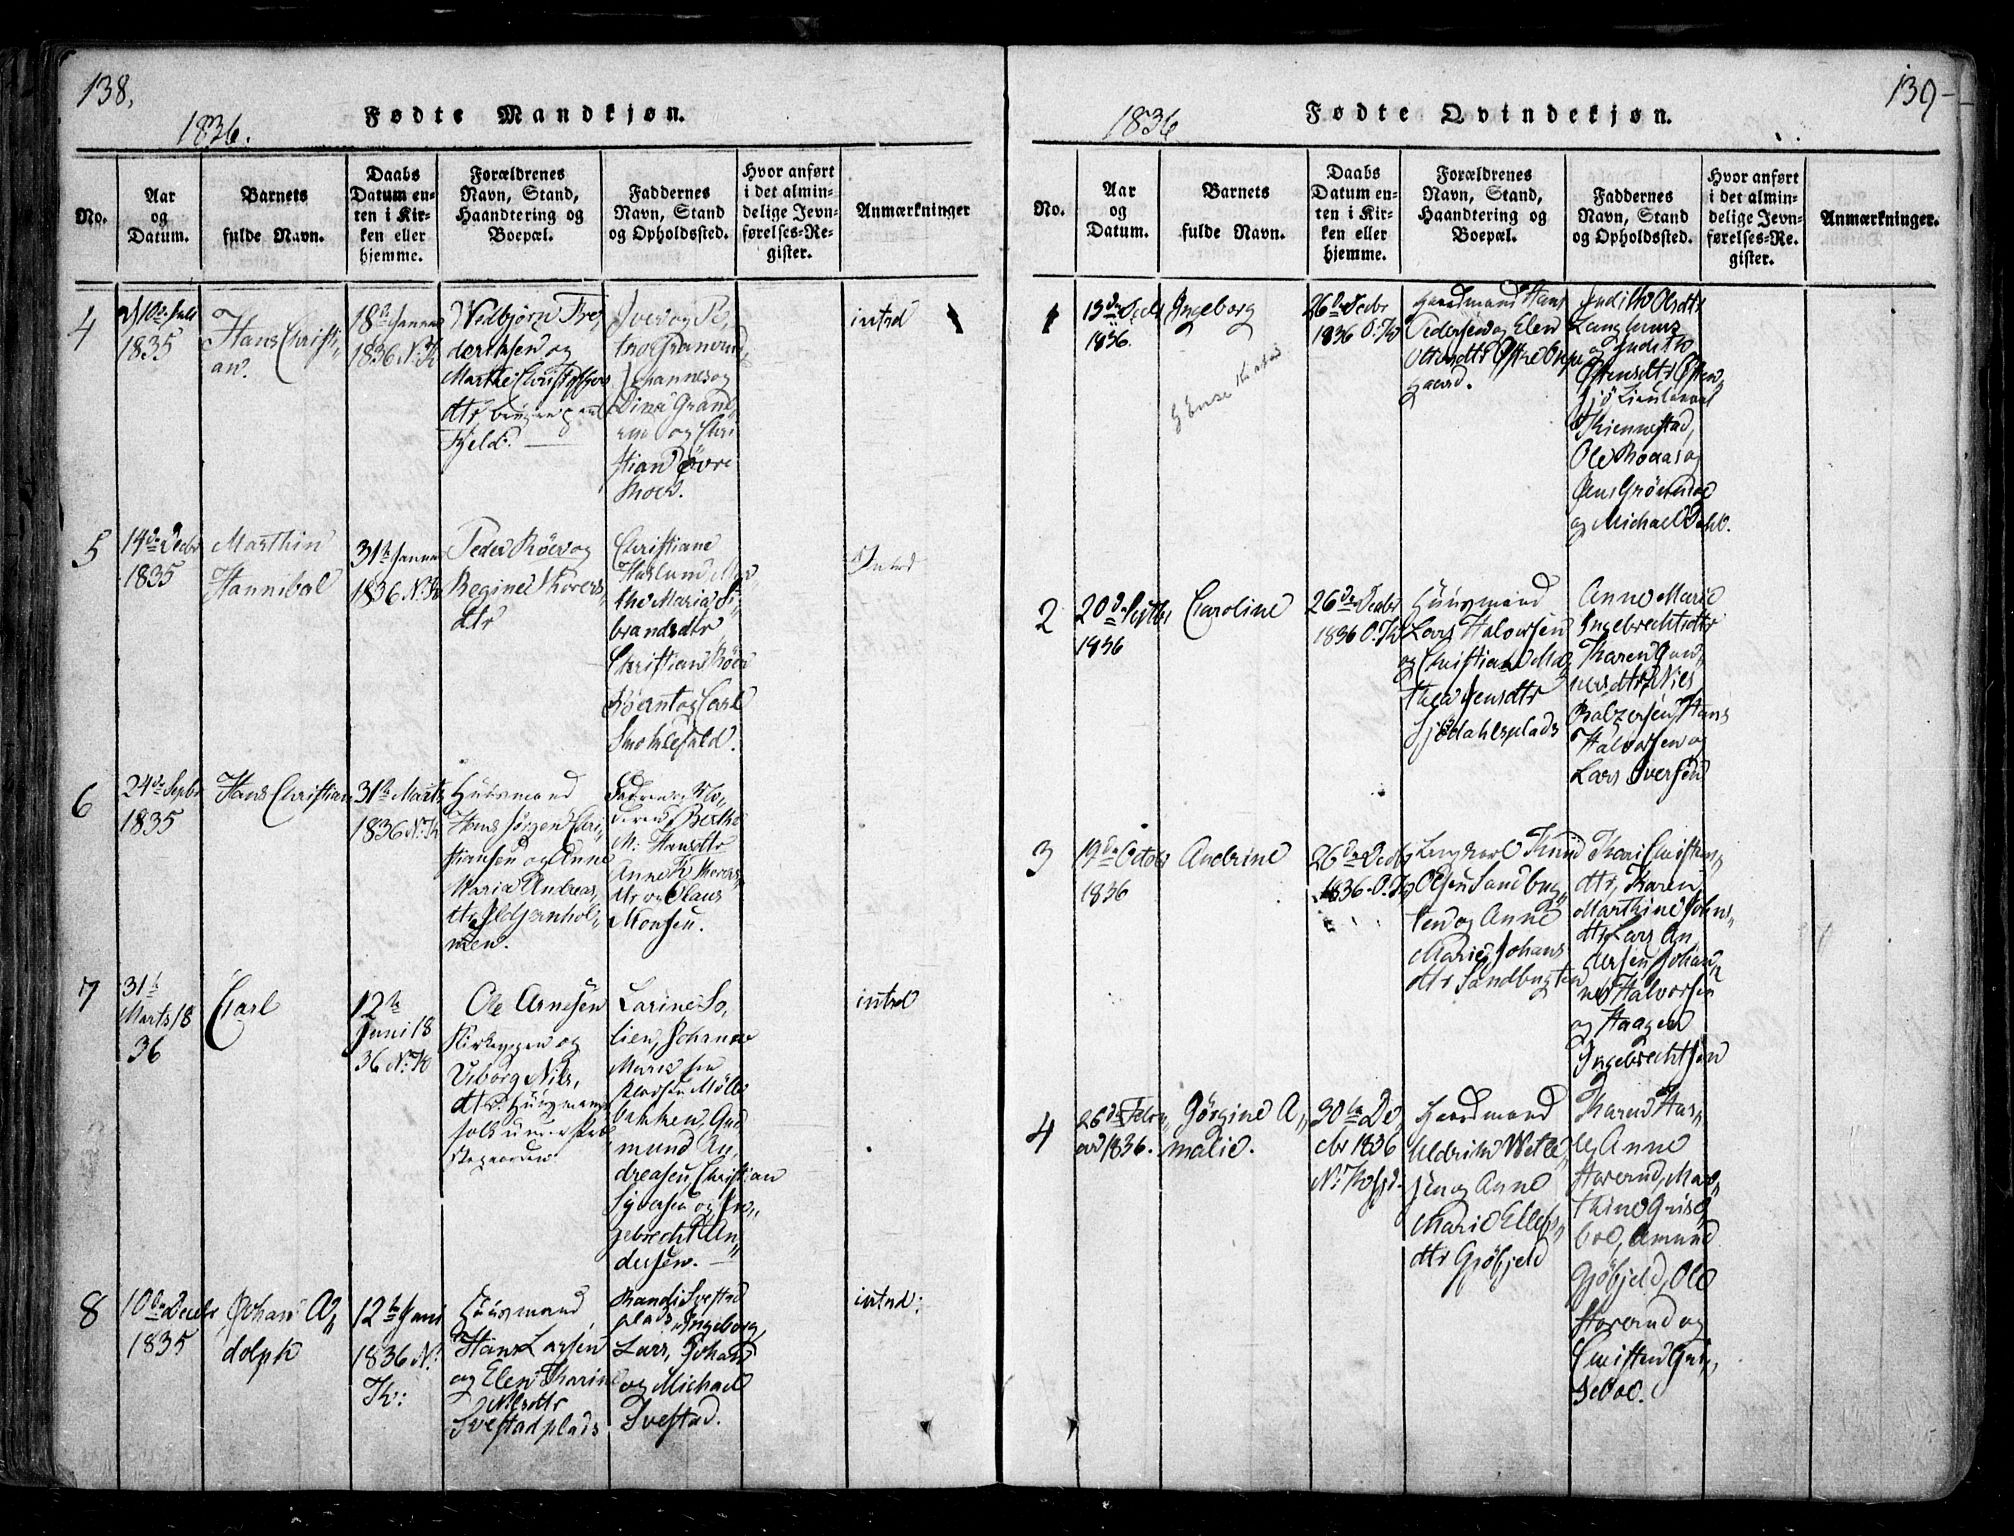 138.
1836.
Fødte Mandkjøn.
No.
Aar
og
Datum.
Barnets
fulde Navn.
Daabs
Datum en-
ten i Kir-
ken eller
hjemme.
Forældrenes
Navn, Stand,
Haandtering og
Boepæl.
Faddernes
Navn, Stand
og Opholdssted.
Hvor anført
i det almin-
delige Jevn-
førelses-Re-
gister.
Anmærkninger
4
10de Juli
1835
Hans Christi-
an.
18de Januar
1836 N. K
Wedbjørn Fre,
deriksen og
Marthe Christoffers
dtr
Fjeld.
Iver og Pe,
Johannes og
Dina Gran,
rud og Chri
stian øvre
Moen.
intrd
5
14de Decbr
1835
Marthin
Hannibal
31te Januar
1836 N. K
Peder Röer og
Regine Thorers,
dtr
Christiane
Haslund, Mar,
the Maria Si,
brandsdtr
Christian Röer
og Carl
Intrd
6
24de Septbr
1835
Hans Christian
31te Marts
1836 N. K
Huusmand
Hans Jørgen Chri,
stiansen og Anne
Maria Andreas,
dtr Ildjernhol,
men.
Faderen, Mo,
deren, Berthe
M. Hansdtr
Anne K Thorers,
dtr og Claus
Monsen.
7
31te
Marts 18
36
Carl
12te
Juni 18
36 N. K
Ole Arnesen
og
Viborg Niels,
dtr. Huusmands
folk under
Larine So,
lien, Johanne
Marie
Mölle
bakken, Gud
mund An,
dreasen, Christian
Syversen og In,
gebrecht An,
dersen.
intrd
8
10de Decbr
1835
Johan A,
dolph
12te Juni
1836 N.
K:
Huusmand
Hans Larsen
og Elen Karine
Nilsdtr
Svestad plads
Randi Svestad
plads, Ingeborg,
Lars, Johan
og Michael
Svestad.
intrd:
139
1836
Fødte Qvindekjøn.
No.
Aar
og
Datum.
Barnets
fulde Navn.
Daabs
Datum en-
ten i Kir-
ken eller
hjemme.
Forældrenes
Navn, Stand,
Haandtering og
Boepæl.
Faddernes
Navn, Stand
og Opholdssted.
Hvor anført
i det almin-
delige Jevn-
førelses-Re-
gister.
Anmærkninger.
1
13de Decbr
1836.
Ingeborg
26de Decbr
1836 O. K
Gaardmand Hans
Pedersen og Elen
gaard.
Judith Olsdtr
og Judith
Ole Roaas og
og Michael
2
20de Septbr
1836
Caroline
26de Decbr
1836 O. K
Huusmand
Lars Halvorsen
og Christiane Ma,
thea Jensdtr
Sjödahlsplads
Anne Marie
Ingebrechtsdtr
Karen Han,
nesdtr, Niels
Balzersen, Hans
Halvorsen og
Lars Iversen
3
19de Octobr
1836
Andrine
26de Decbr
1836. O. K
Ungkarl Knud
Olsen Sandbug,
ten og Anne
Marie Johans
dtr Sandbugten
Kari Christians,
dtr, Karen
Marthine Johns,
dtr, Lars An
dersen, Johan,
nes Halvorsen
og Haagen
Ingebrechtsen
4
26de Febru,
ar 1836.
Jörgine A,
malie.
30te De,
cbr 1836
N. K
Gaardmand
Uldrik Wetle
sen og Anne
Marie Ellefs,
dtr Gjöfjeld
Karen Has,
le, Anne
Storerud, Mar,
thine Grise,
boe, Amund
Gjöfjeld, Ole
Storerud og
Christen Gri,
seboe.